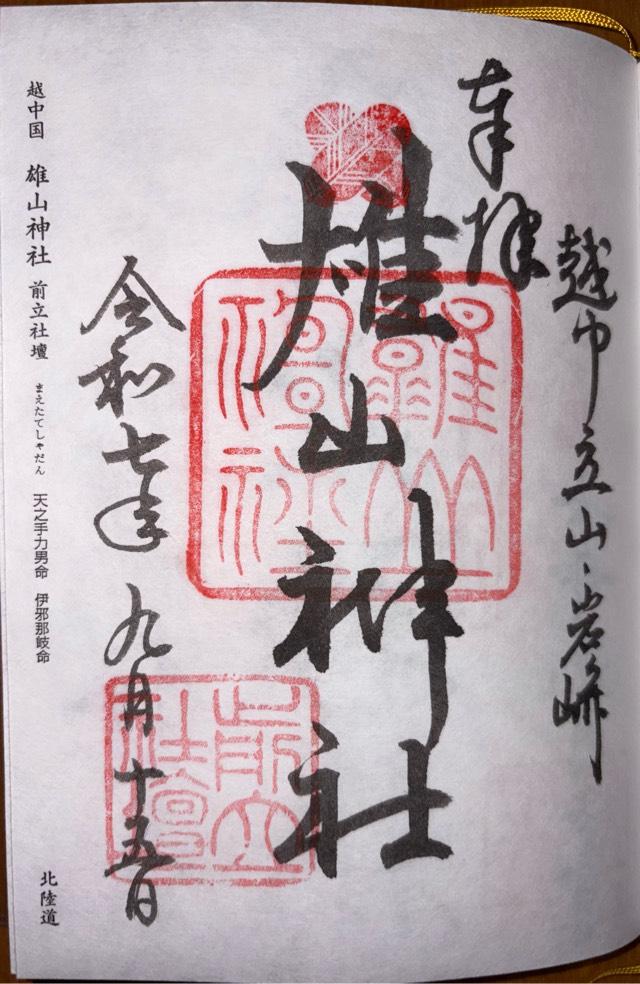 越中立山岩峅
奉拝
雄山神社
前立社壇
令和七年九月十五日
越中国 雄山神社 前立社壇 まえたてしゃだん 天之手力男命 伊邪那岐命 北陸道